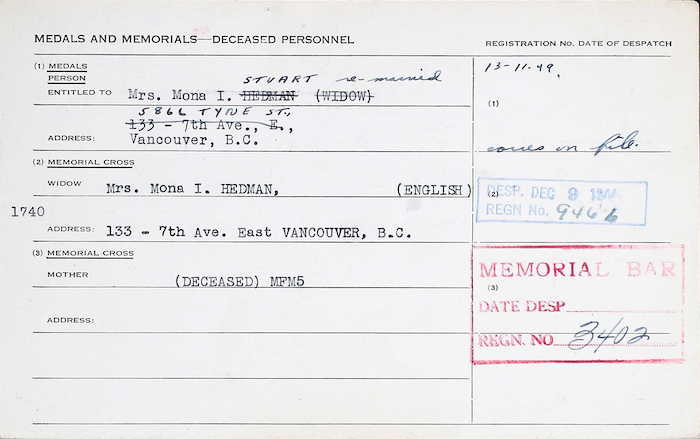 MEDALS AND MEMORIALS—DECEASED PERSONNEL
REGISTRATION No. DATE OF DESPATCH
(1) MEDALS
PERSON
ENTITLED TO Mrs. Mona I. HEDMAN (WIDOW)
STUART re-married
13-11-49.
(1)
5866 TYNE ST.,
133 - 7th Ave., E.,
ADDRESS: Vancouver, B.C.
on file.
(2) MEMORIAL CROSS
WIDOW Mrs. Mona I. HEDMAN, (ENGLISH)
(2)
DESP. DEC 9
REGN No. 9466
1740
ADDRESS: 133 - 7th Ave. East VANCOUVER, B.C.
(3) MEMORIAL CROSS
MOTHER (DECEASED) MFM5
MEMORIAL BAR
(3)
DATE DESP
REGN. NO 3402
ADDRESS: